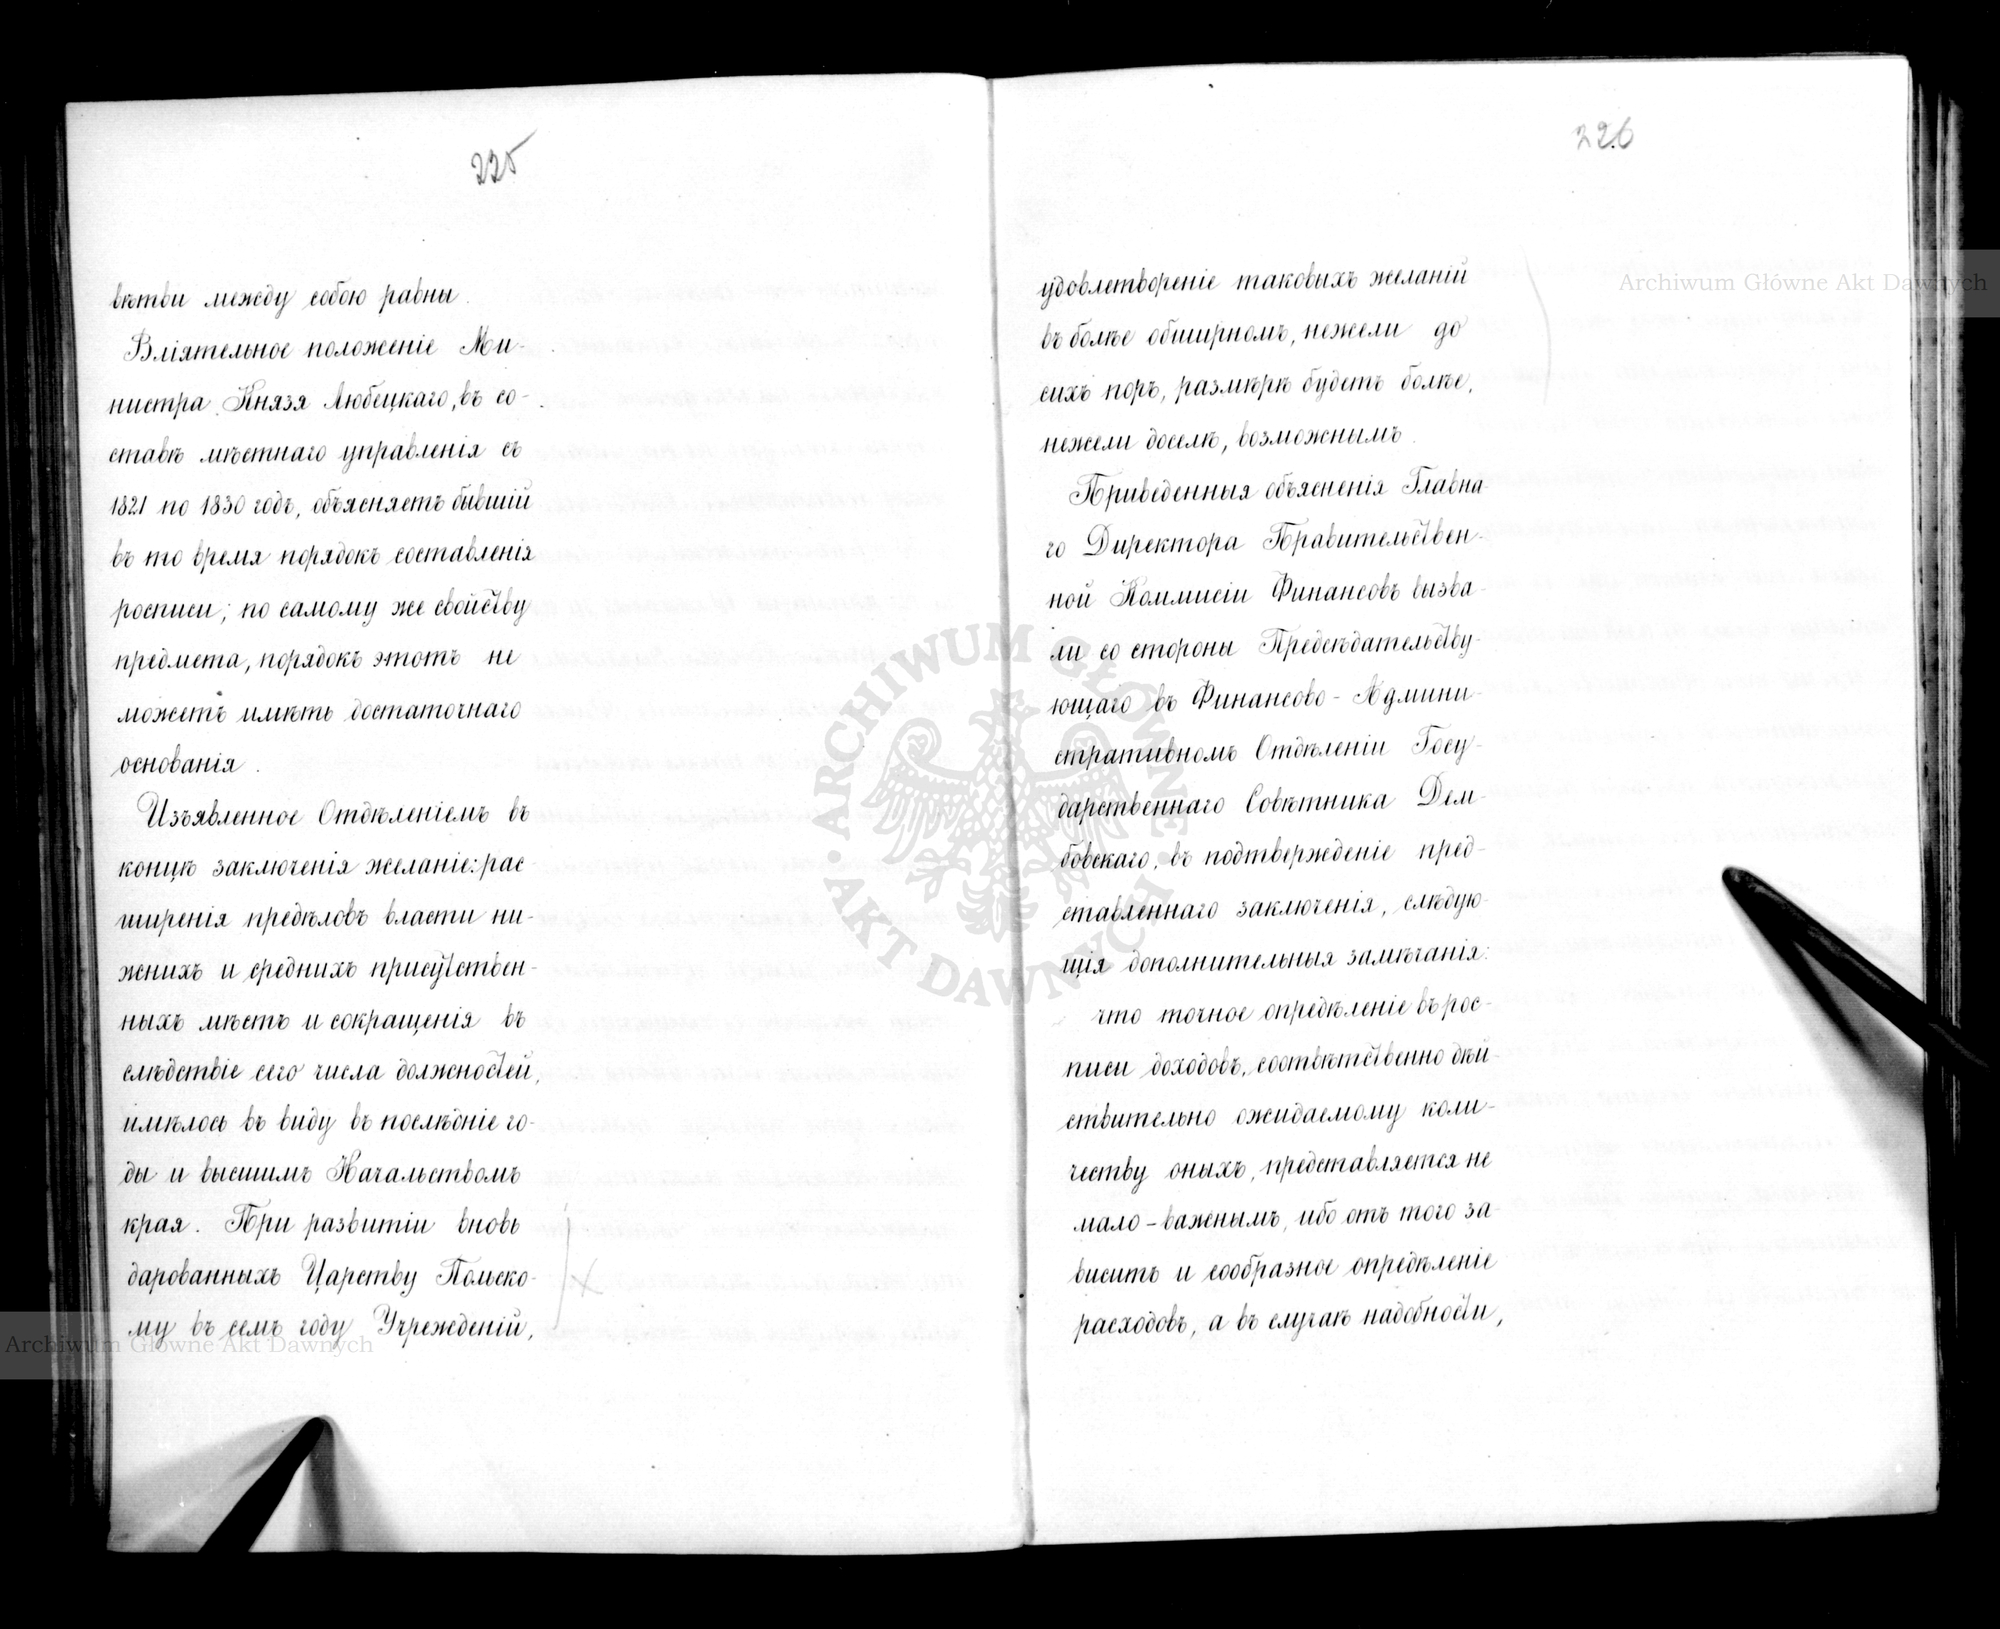 225
вѣтви между собою равны.
Вліятельное положеніе Ми-
нистра Князя Любецкаго, въ со-
ставѣ мѣстнаго управленія съ
1821 по 1830 годъ, объясняетъ бывшій
въ то время порядокъ составленія
росписи; по самому же свойству
предмета, порядокъ этотъ не
можетъ имѣть достаточнаго
основанія.
Изъявленное Отдѣленіемъ въ
концѣ заключенія желаніе: рас
ширенія предѣловъ власти ни-
жнихъ и среднихъ присутствен-
ныхъ мѣстъ и сокращенія въ
слѣдствіе сего числа должностей,
имѣлось въ виду въ послѣдніе го-
ды и высшимъ Начальствомъ
края. При развитіи вновь
дарованныхъ Царству Польско-
му въ семъ году Учрежденій,
226
удовлетвореніе таковыхъ желаній
въ болѣе обширномъ, нежели до
сихъ поръ, размѣрѣ будетъ болѣе,
нежели доселѣ, возможнымъ.
Приведенныя объясненія Главна-
го Директора Правительствен-
ной Коммисіи Финансовъ вызва-
ли со стороны Предсѣдательству-
ющаго въ Финансово-Админи-
стративномъ Отдѣленіи Госу-
дарственнаго Совѣтника Дем-
бовскаго, въ подтвержденіе пред-
ставленнаго заключенія, слѣдую-
щія дополнительныя замѣчанія:
что точное опредѣленіе въ рос-
писи доходовъ, соотвѣтственно дѣй-
ствительно ожидаемому коли-
честву оныхъ, представляется не
мало-важнымъ, ибо отъ того за
виситъ и сообразное опредѣленіе
расходовъ, а въ случаѣ надобности,
Archiwum Główne Akt Dawnych
Archiwum Główne Akt Dawnych
ARCHIWUM GŁÓWNE • AKT DAWNYCH •